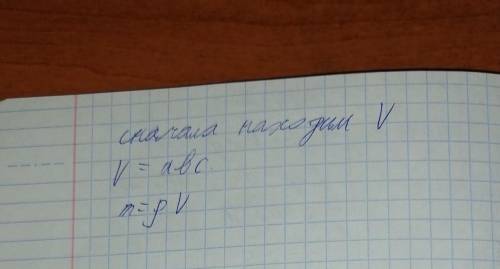 сначала находим V
V = abc.
m=ρV